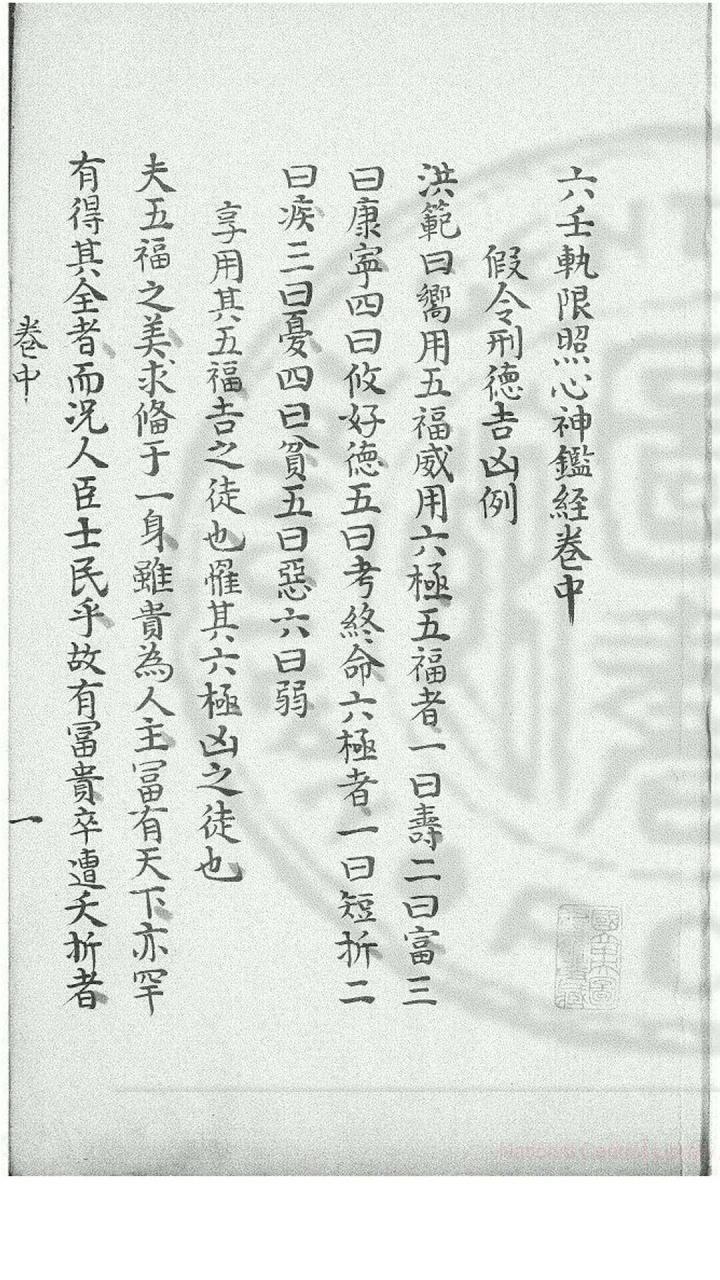 六壬軌限照心神鑑経卷中
假令刑德吉凶例
洪範曰嚮用五福威用六極五福者一曰壽二曰富三
曰康寧四曰攸好德五曰考終命六極者一曰短折二
曰疾三曰憂四曰貧五曰惡六曰弱
享用其五福吉之徒也罹其六極凶之徒也
夫五福之美求俻于一身雖貴為人主冨有天下亦罕
有得其全者而況人臣士民乎故有冨貴卒遭夭折者
卷中
一
National Central Library